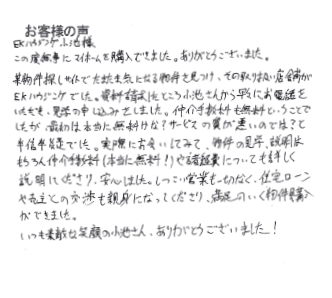 お客様の声
EKハウジング 小池様
この度無事にマイホームを購入できました。ありがとうございました。
某物件探しサイトでたまたま気になる物件を見つけ、その取り扱い店舗が
EKハウジングでした。資料請求したところ小池さんから早くにお電話を
いただき、見学の申し込みをしました。仲介手数料も無料ということで
したが、最初は本当に無料かな？サービスの質が悪いのでは？と
半信半疑でした。実際にお会いしてみて、物件の見学、説明は
もちろん仲介手数料(本当に無料！)や諸経費についても詳しく
説明してくださり、安心しました。しつこい営業も一切なく、住宅ローン
や売主との交渉も親身になってくださり、満足のいく物件購入
ができました。
いつも素敵な笑顔の小池さん、ありがとうございました！